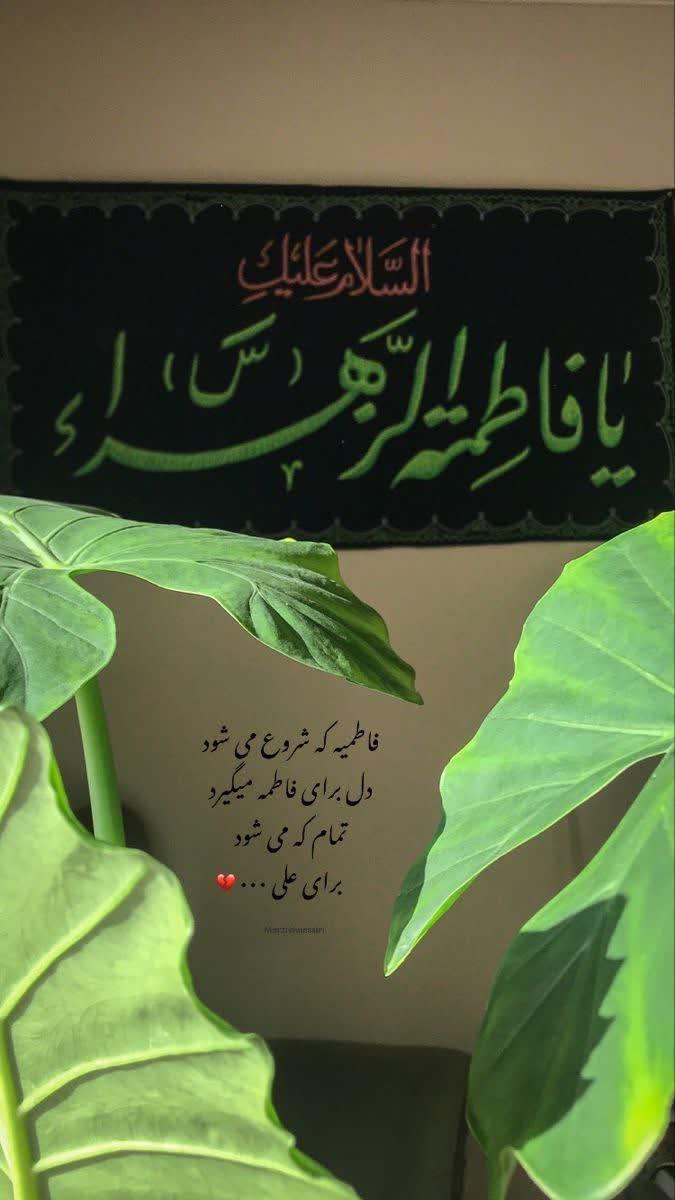 السَّلامُ عَلَيْكِ
يٰا فاطِمَتَه الزَّهراء (س)
فاطمیه که شروع می شود
دل برای فاطمه میگیرد
تمام که می شود
برای علی ... 💔